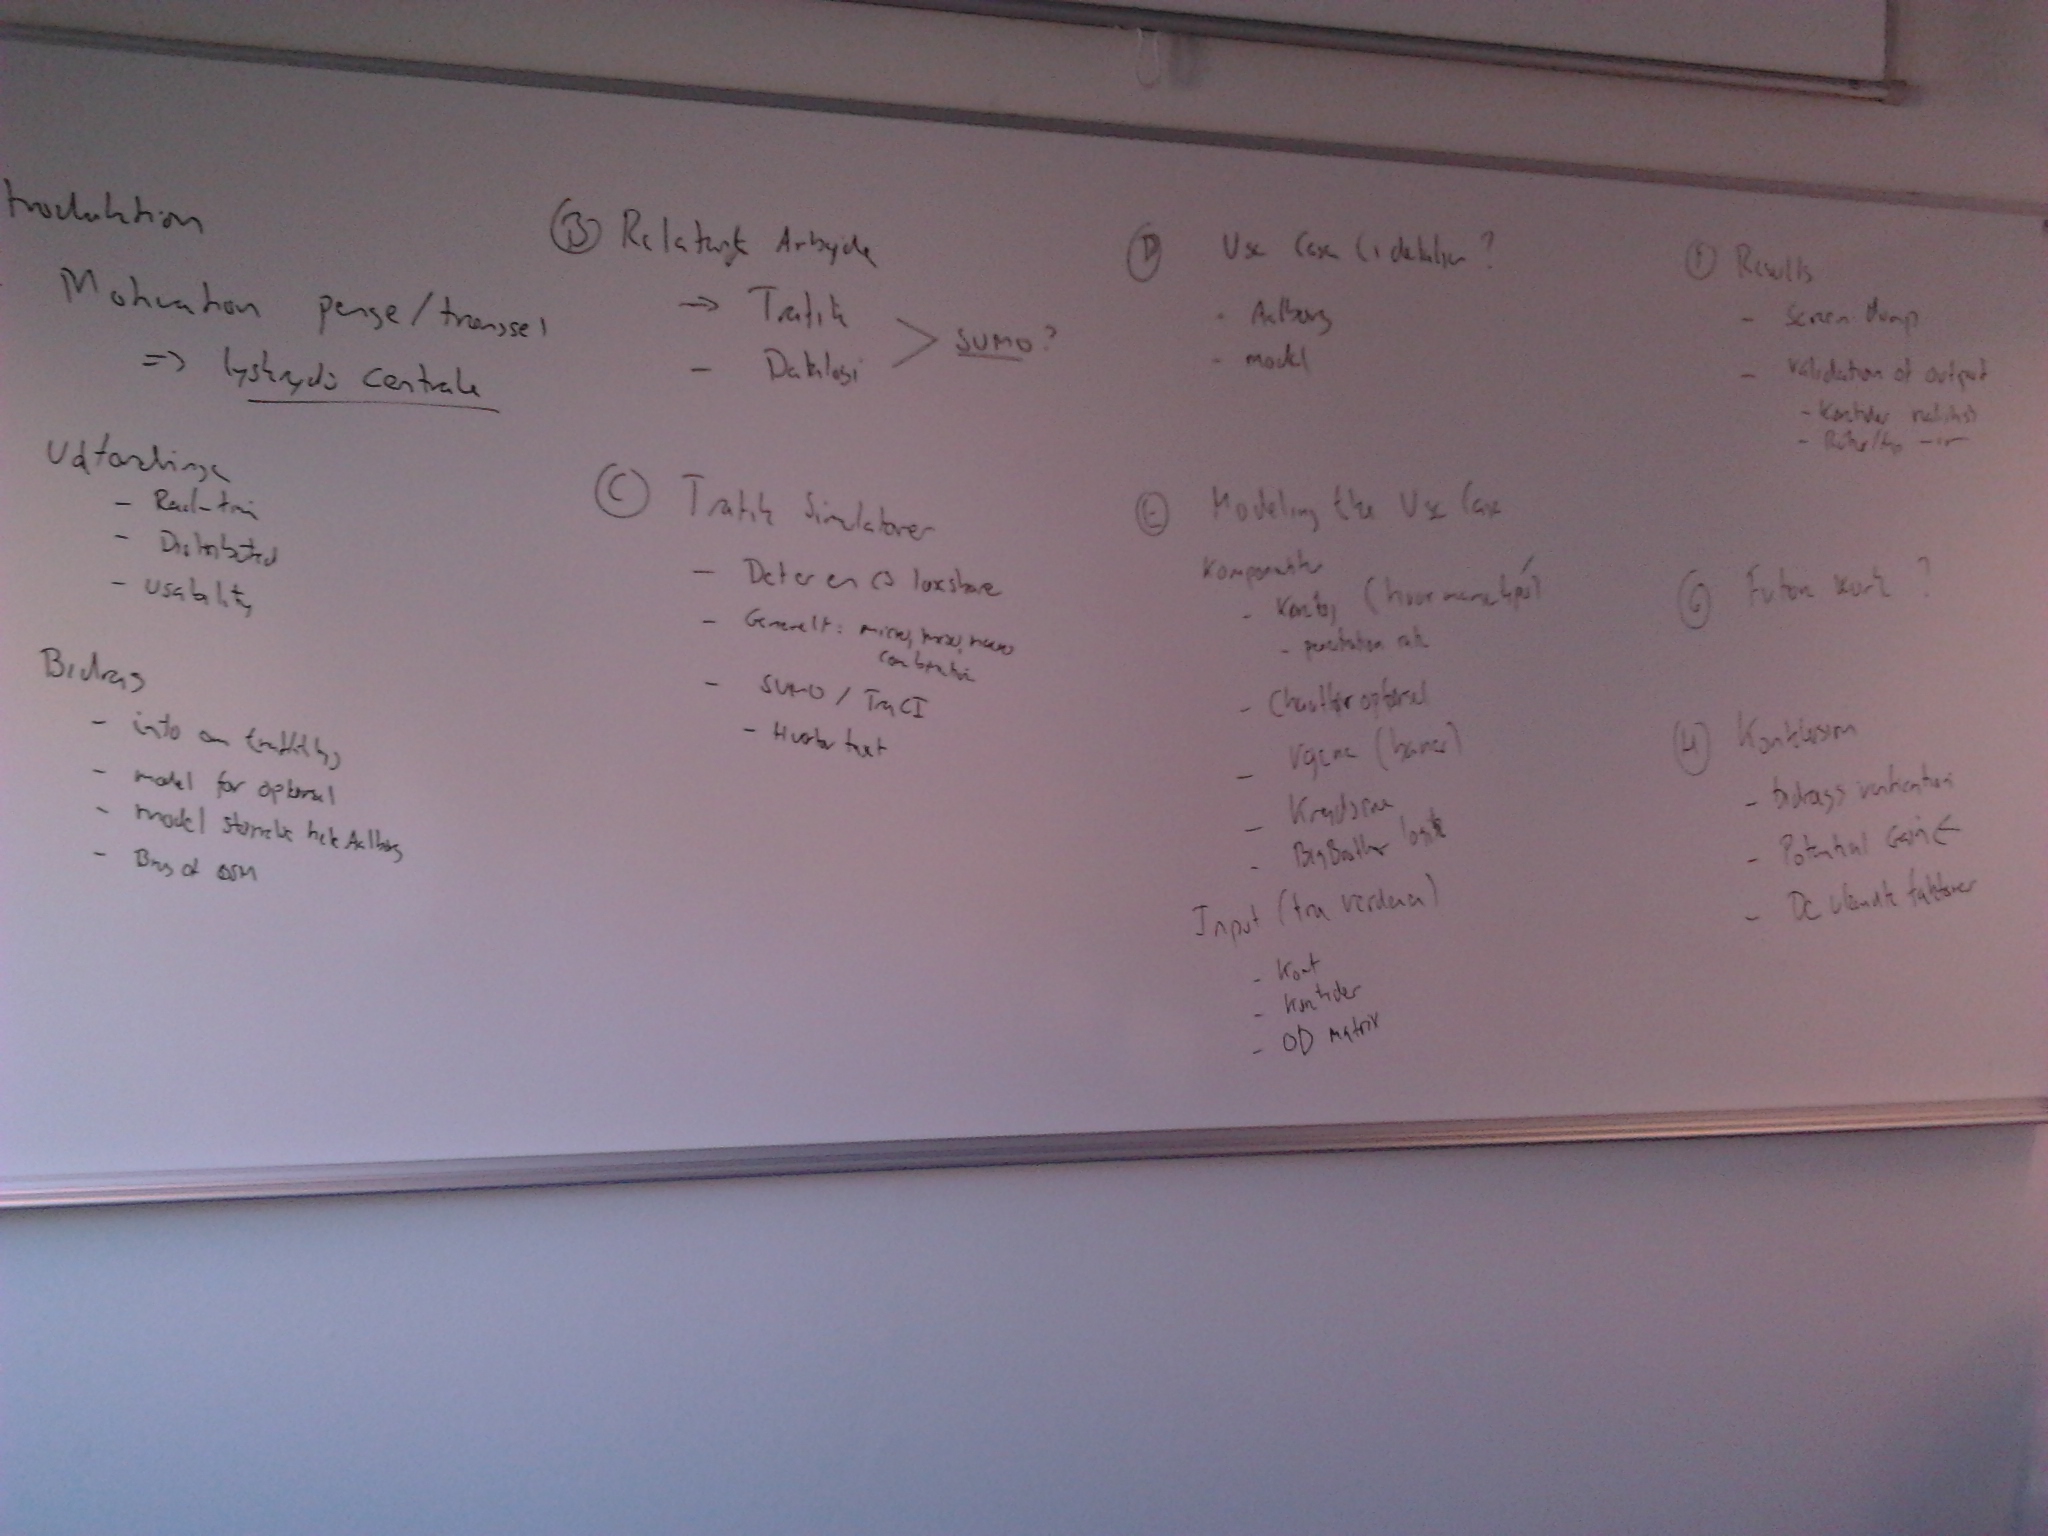 troduktion
Motivation penge/trængsel
=> lyskryds centrale
Udfordringe
- Real-tim
- Distributed
- Usability
Bidrag
- info om trafiklys
- model for opførsel
- model størrelse hele Aalborg
- Brug af OSM
(B) Relateret Arbejde
-> Trafik
- Datalogi
> SUMO?
(C) Trafik Simulatorer
- Deter en <> løsshare
- Generelt: micro, meso, macro
combination
- SUMO / TraCI
- Hvorfor
(D) Use Case i detaljer?
- Aalborg
- model
(E) Modeling the Use Case
Komponenter
- Køretøj (hvor mange typer)
- penetration rate
- Chauffør opførsel
- Vejene (baner)
- Krydsene
- BigBrother logik
Input (fra verden)
- Kort
- Køretider
- OD matrix
(F) Results
- Screen dump
- Validation of output
- Køretider realistisk
(G) Future work?
(H) Konklusion
- bidrags verification
- Potential Gain <-
- De vigtigste faktorer